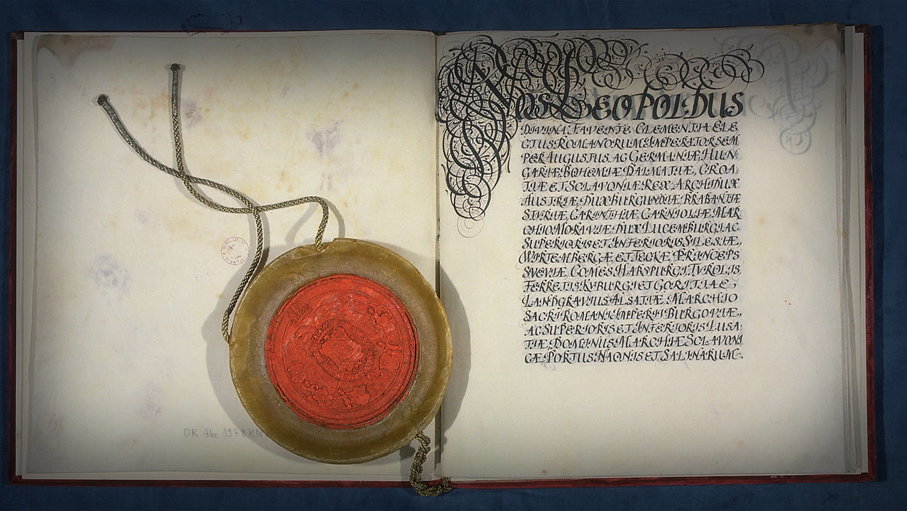 NOS LEOPOLDUS
DIVINA FAVENTE CLEMENTIA ELE
CTUS ROMANORUM IMPERATOR SEM
PER AUGUSTUS, AC GERMANIÆ, HUN
GARIÆ, BOHEMIÆ, DALMATIÆ, CROA
TIÆ ET SCLAVONIÆ REX, ARCHIDUX
AUSTRIÆ, DUX BURGUNDIÆ, BRABANTIÆ
STIRIÆ, CARINTHIÆ, CARNIOLIÆ, MAR
CHIO MORAVIÆ, DUX LUCEMBURGI, AC
SUPERIORIS ET INFERIORIS SILESIÆ,
WIRTEMBERGÆ, ET TECKÆ, PRINCEPS
SUEVIÆ, COMES HABSPURGI, TYROLIS,
FERRETIS, KYBURGI ET GORITIÆ,
LANDGRAVIUS ALSATIÆ, MARCHIO
SACRI ROMANI IMPERII BURGOVIÆ,
AC SUPERIORIS ET INFERIORIS LUSA
TIÆ, DOMINUS MARCHIÆ SCLAVONI
CÆ, PORTUS NAONIS ET SALINARUM.